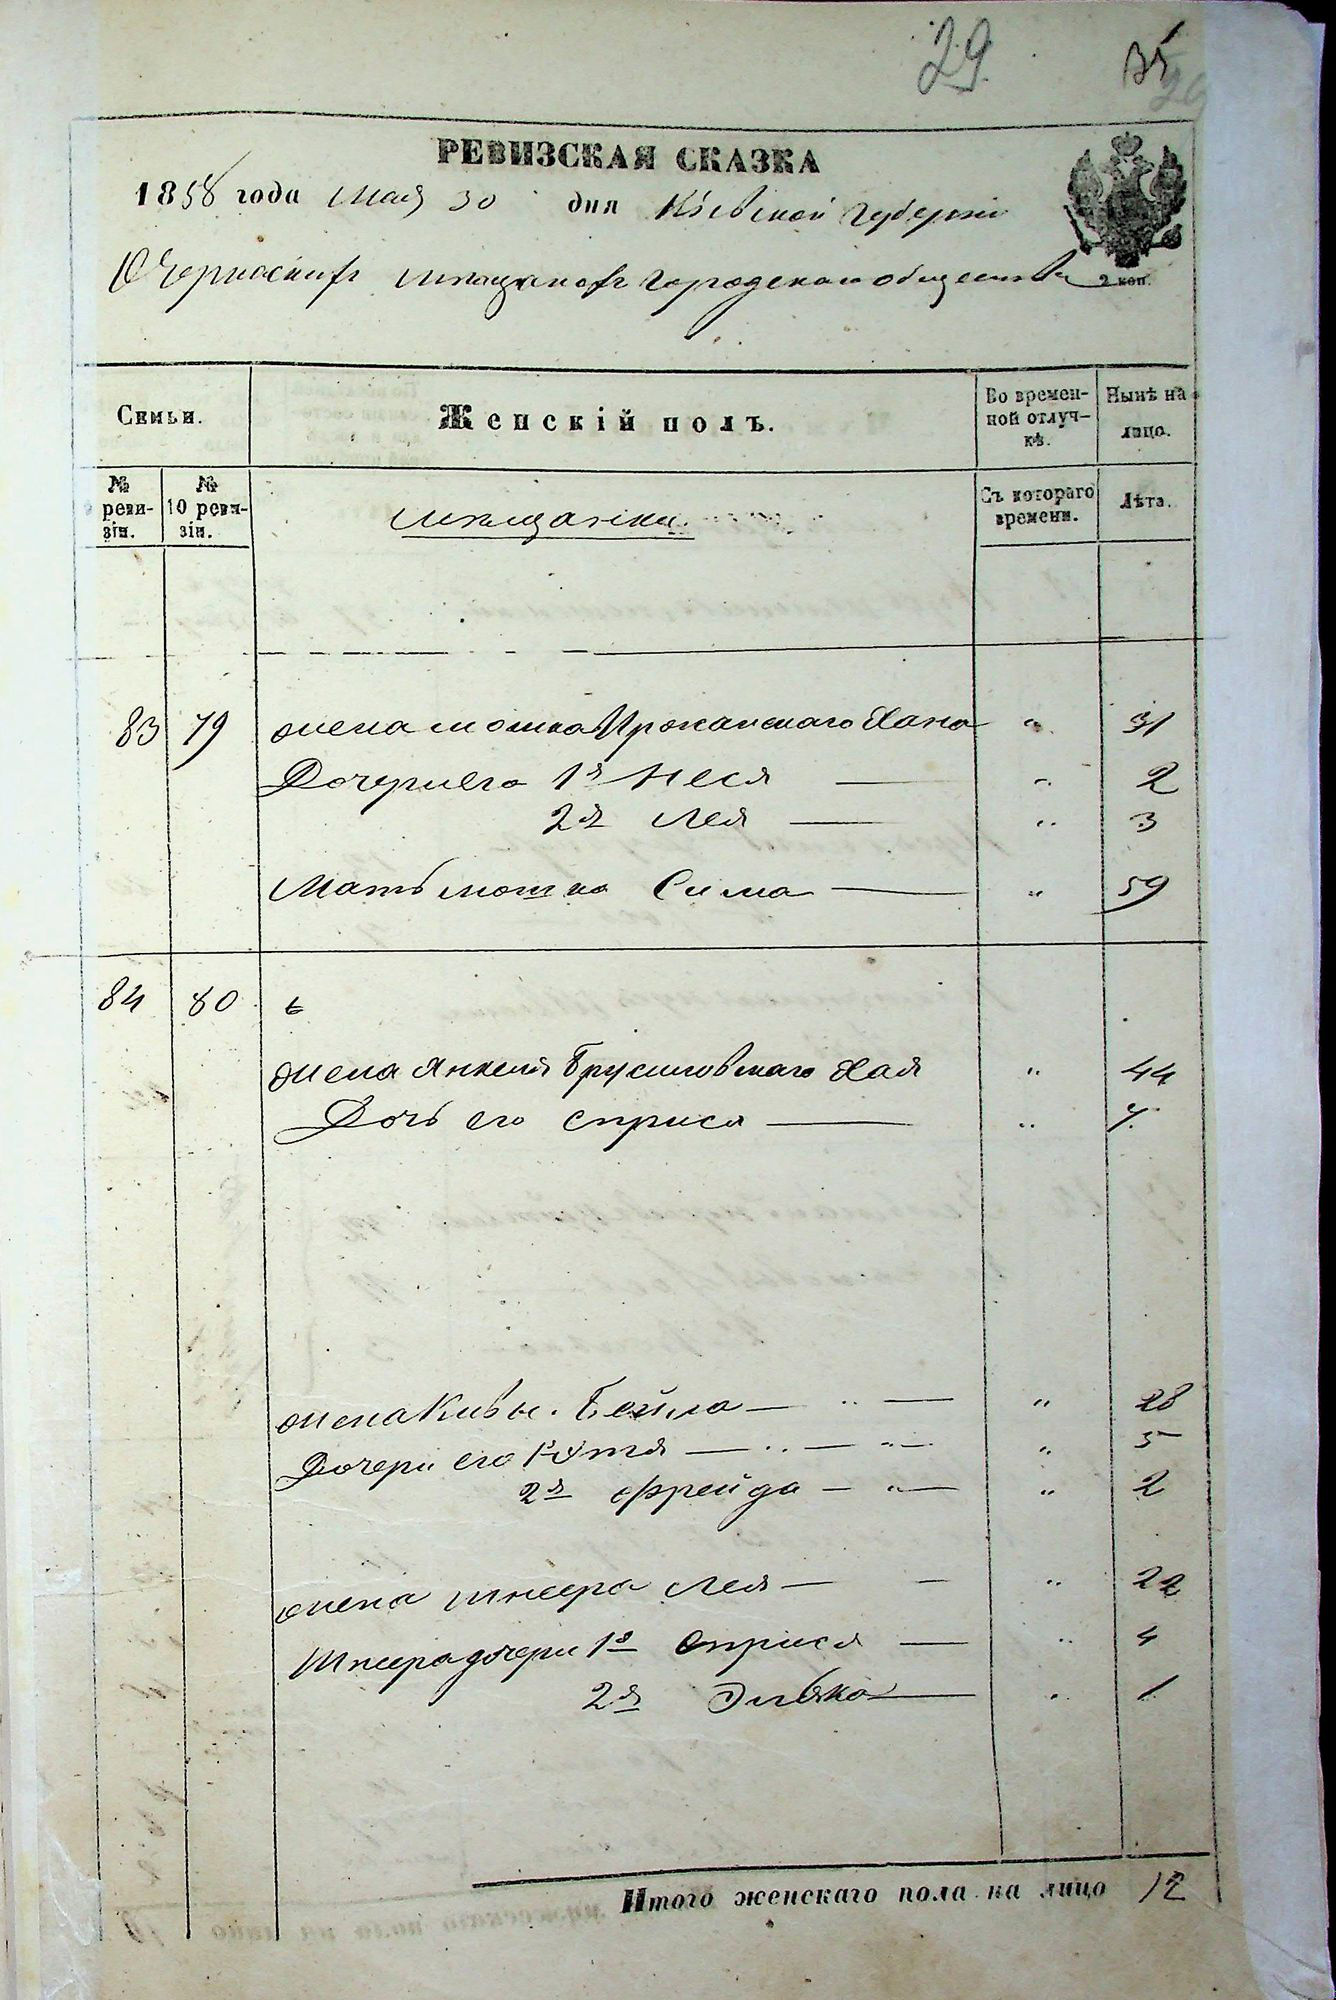 29
35
29
РЕВИЗСКАЯ СКАЗКА
1858 года Мая 30 дня Кіевской Губерніи
О Черкаскихъ мѣщанахъ городскаго общества
2 коп.
Семьи.
Женскій полъ.
Во временной отлучкѣ.
Нынѣ на лицо.
№ ревизіи.
№ 10 ревизіи.
Мѣщанки
Съ котораго времени.
Лѣта.
83 79 жена Мошка Иржавскаго Хана " 31
Дочери его 1я Неся — " 2
2я Лея — " 3
Мать Мошка Сима — " 59
84 80
жена Янкеля Брусиловскаго Хая " 44
Дочь его Стрися — " 7
жена Кивы Бейла — " — " 28
Дочери его 1я Эстя — " — " — " 5
2я Фрейда — " — " 2
жена Шнеера Лея — — " 22
Шнеера дочери 1я Стрися — " 4
2я Элька — " 1
Итого женскаго пола на лицо 12